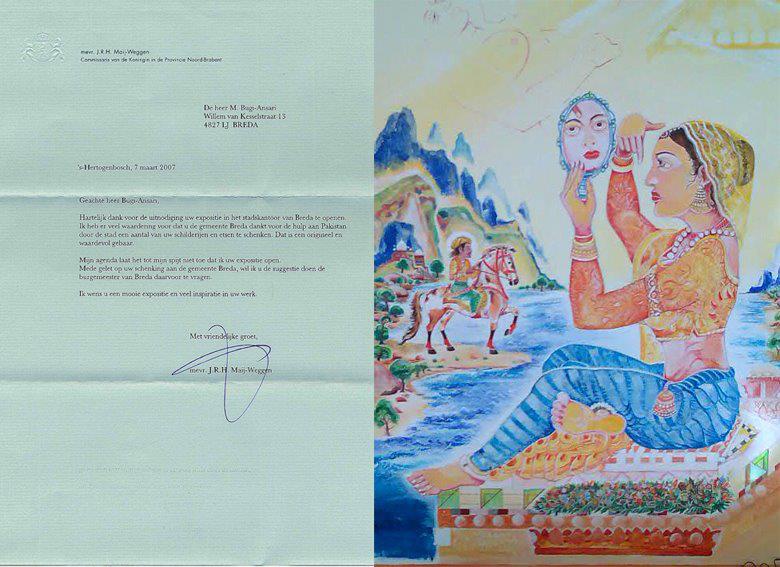 mevr. J.R.H. Maij-Weggen
Commissaris van de Koningin in de Provincie Noord-Brabant
De heer M. Bugi-Ansari
Willem van Kesselstraat 13
4827 LJ BREDA
's-Hertogenbosch, 7 maart 2007
Geachte heer Bugi-Ansari,
Hartelijk dank voor de uitnodiging uw expositie in het stadskantoor van Breda te openen.
Ik heb er veel waardering voor dat u de gemeente Breda dankt voor de hulp aan Pakistan
door de stad een aantal van uw schilderijen en etsen te schenken. Dat is een origineel en
waardevol gebaar.
Mijn agenda laat het tot mijn spijt niet toe dat ik uw expositie open.
Mede gelet op uw schenking aan de gemeente Breda, wil ik u de suggestie doen de
burgemeester van Breda daarvoor te vragen.
Ik wens u een mooie expositie en veel inspiratie in uw werk.
Met vriendelijke groet,
mevr. J.R.H. Maij-Weggen